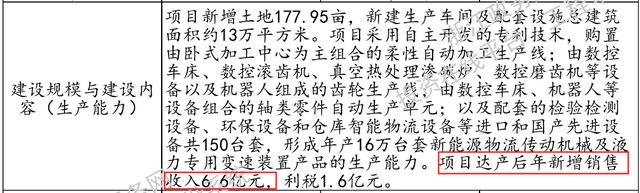 项目新增土地177.95亩，新建生产车间及配套设施总建筑
面积约13万平方米。项目采用自主开发的专利技术，购置
由卧式加工中心为主组合的柔性自动加工生产线；由数控
车床、数控滚齿机、真空热处理渗炭炉、数控磨齿机等设
备以及机器人组成的齿轮生产线；由数控车床、机器人等
设备组合的轴类零件自动生产单元；以及配套的检验检测
设备、环保设备和仓库智能物流设备等进口和国产先进设
备共150台套，形成年产16万台套新能源物流传动机械及液
力专用变速装置产品的生产能力。项目达产后年新增销售
收入6.6亿元，利税1.6亿元。
建设规模与建设内
容（生产能力）